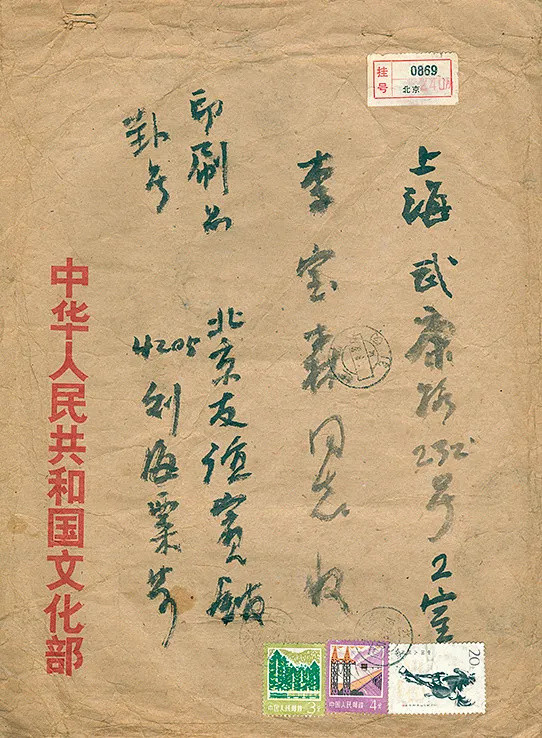 挂号
0869
北京
上海武康路232号2室
李宝森同志收
印刷品
挂号
北京友谊宾馆
4205 刘海粟寄
中华人民共和国文化部
中国人民邮政 3分
中国人民邮政 4分
20分